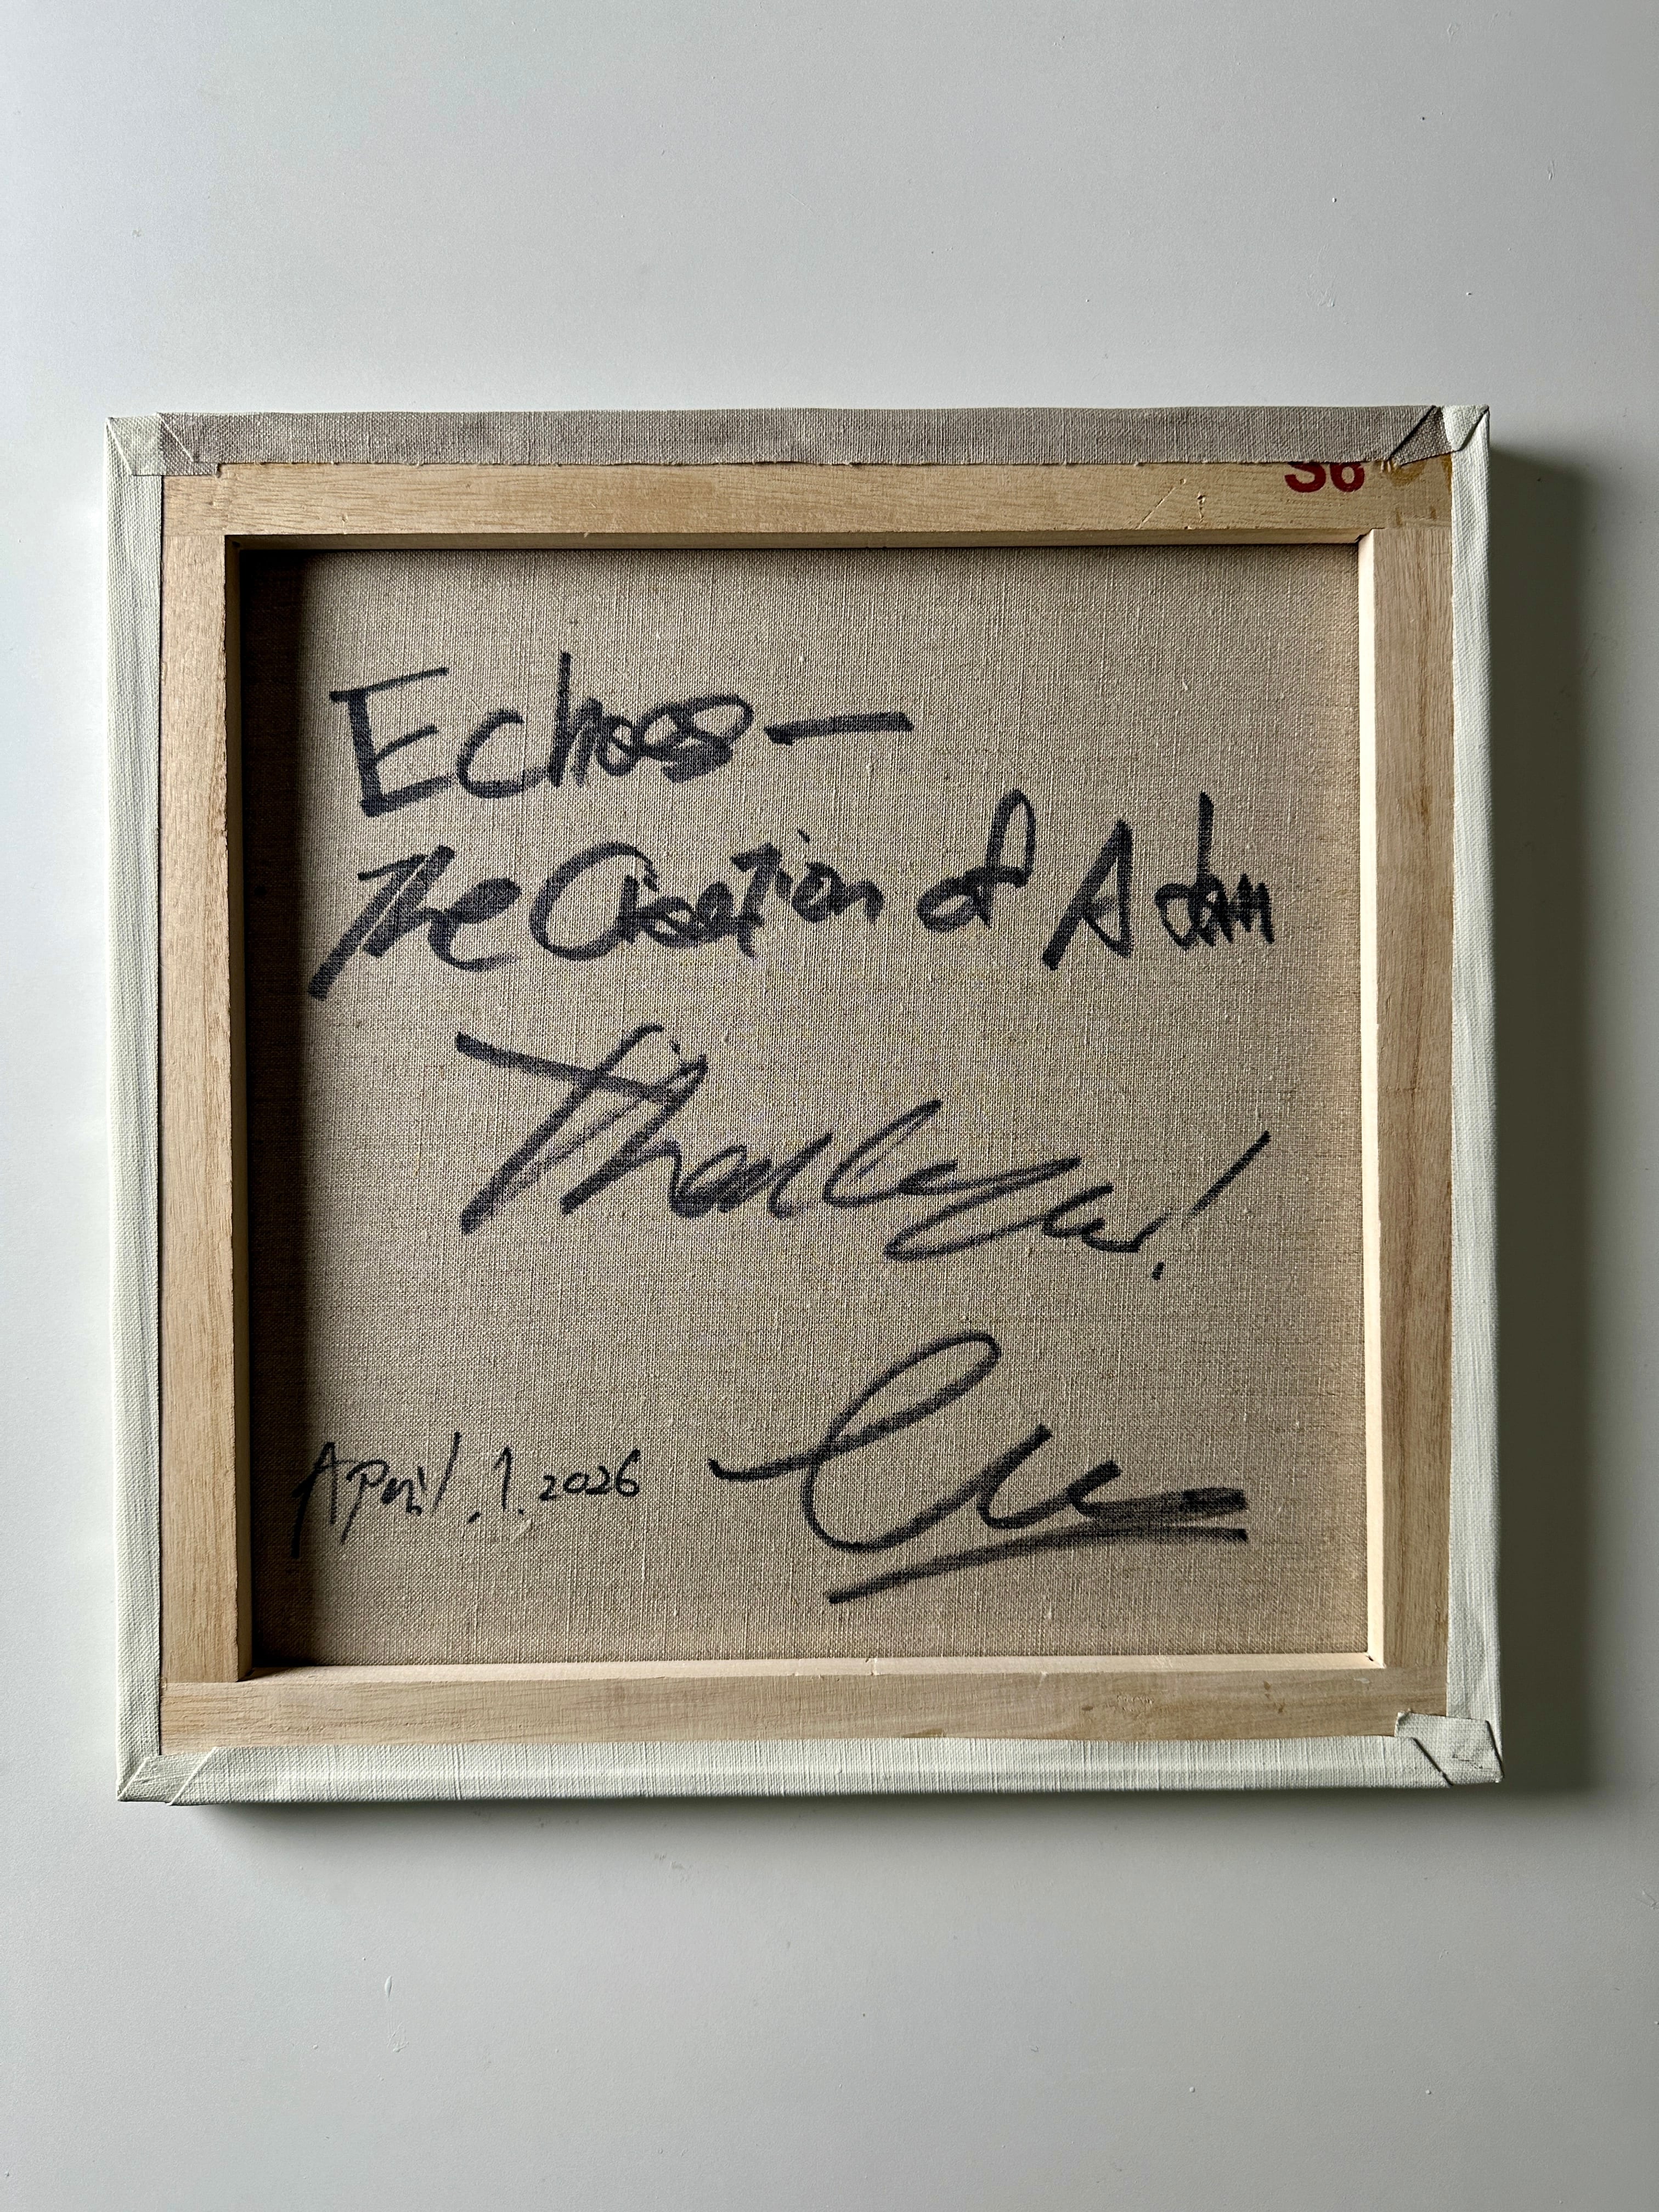 S6
Echoes—
The Creation of Adam
Thank you!
April.1.2026